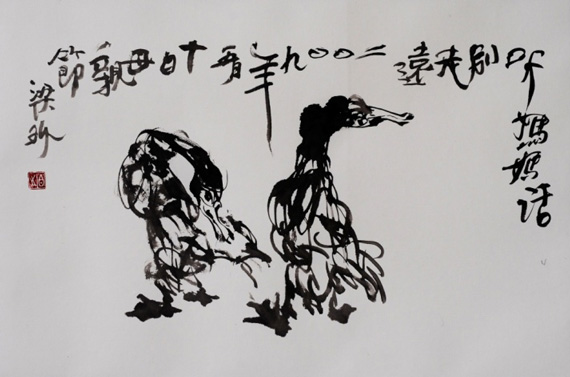 听媽媽话
别走遠
二〇〇九年五月十日母親節
梁